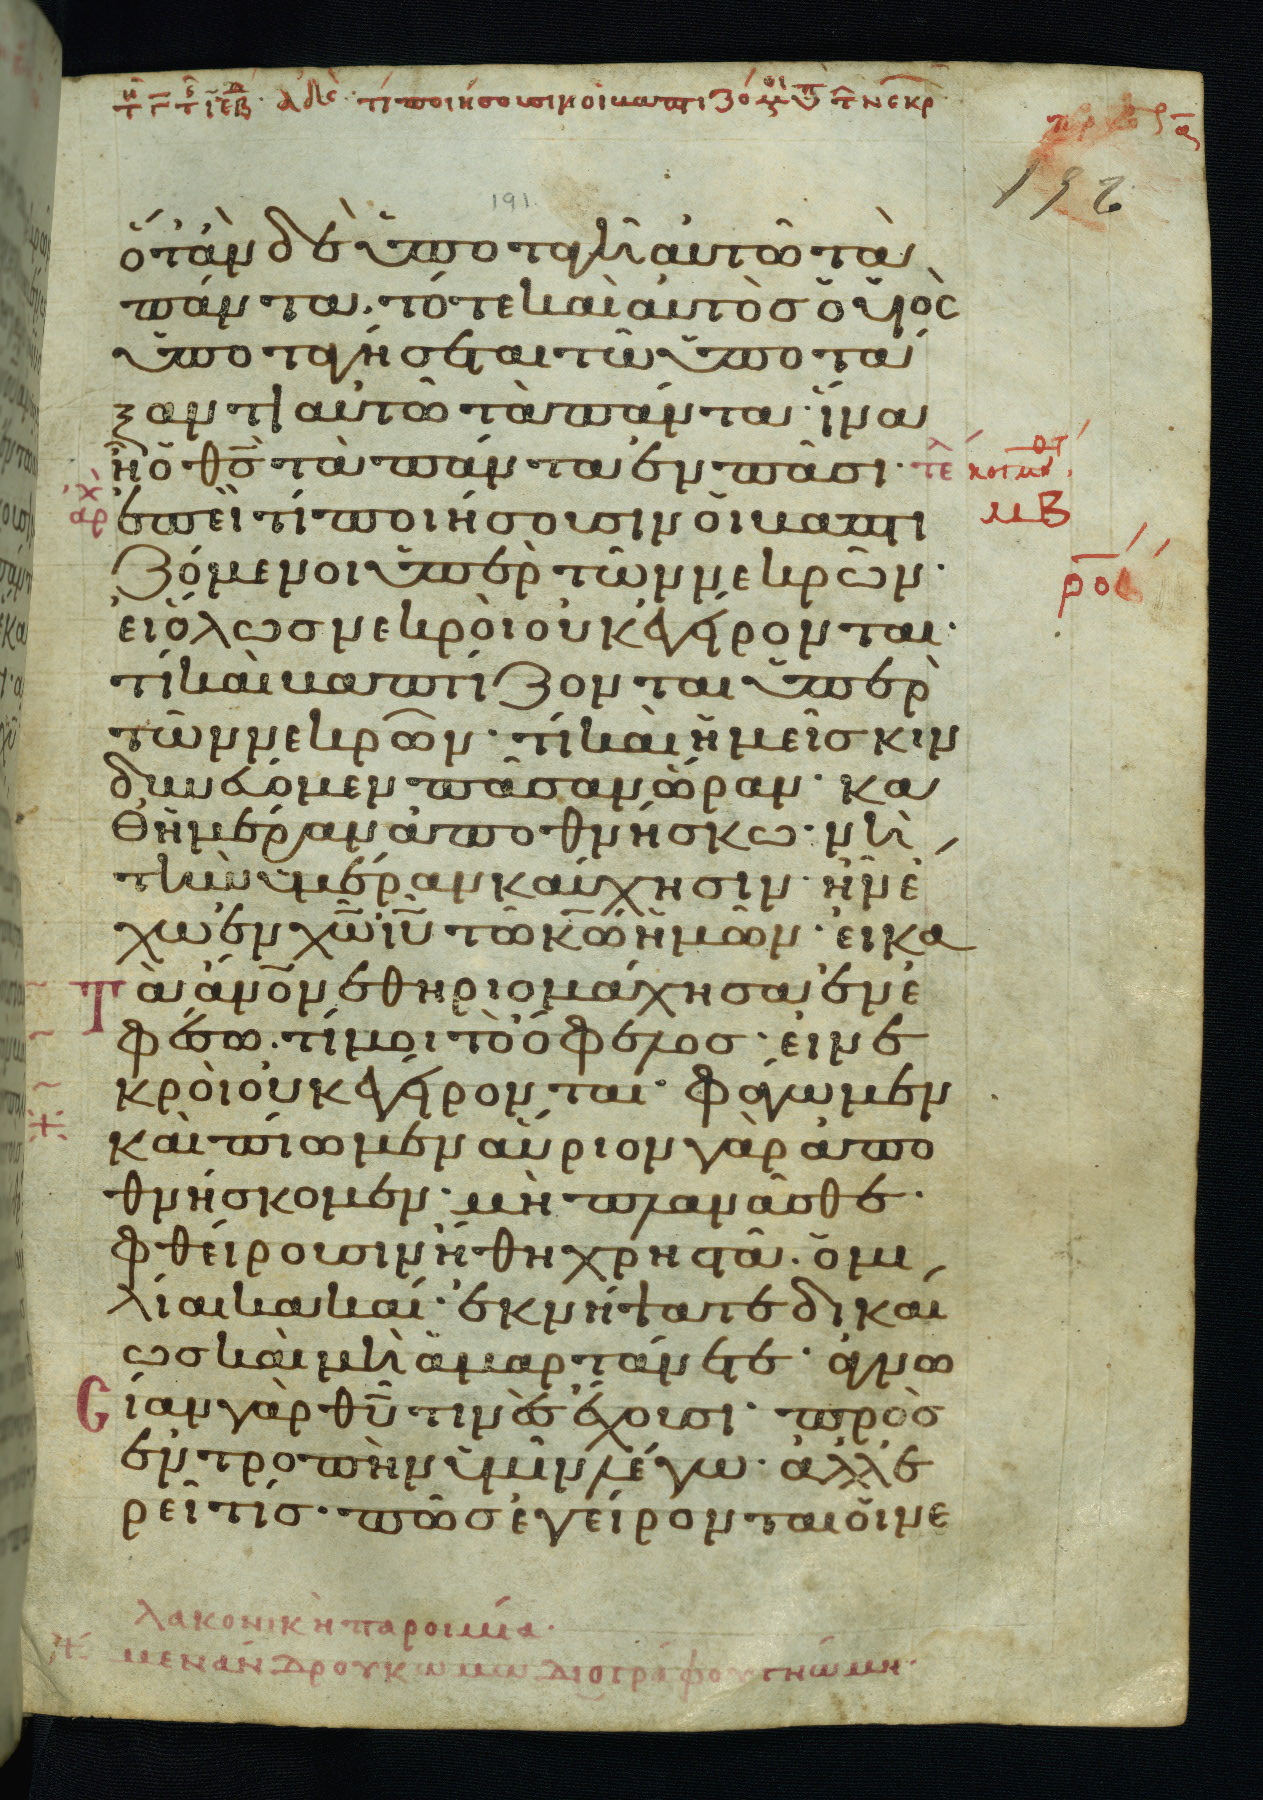 191
192
ὅτὰν δὲ ὑποταγῆ αὐτῶ τὰ
πάντα. τότε καὶ αὐτὸσ ὁ υἱὸς
ὑποταγήσεται τῶ ὑποτά
ξαντι αὐτῶ τὰ πάντα· ἵνα
ἦ ὁ θς̅ τὰ πάντα ἐν πᾶσι· τε
ἀρχ
ἐπεῒ τί ποιήσουσιν οἱ βαπτι
μβ
ζόμενοι ὑπὲρ τῶν νεκρῶν·
εἰ ὅλωσ νεκροὶ οὐκ ἐγείρονται·
τί καὶ βαπτίζονται ὑπὲρ
τῶν νεκρῶν· τί καὶ ἡμεῖσ κιν
δυνεύομεν πᾶσαν ὥραν· κα
θημέραν ἀποθνήσκω· νὴ
τὴν ὑμέραν καύχησιν· ἣν ἔ
χω ἐν χω̅ ιυ̅ τῶ κω̅ ἡμῶν· εἰ κα
τὰ ἀνον̅ ἐθηριομάχησα ἐν ἐ
φέσω. τί μοι τὸ ὄφελοσ· εἰ νε
κροὶ οὐκ ἐγείρονται· φάγωμεν
καὶ πίωμεν αὔριον γὰρ ἀπο
θνήσκομεν· μὴ πλανᾶσθε·
φθείρουσιν ἤθη χρηστὰ. ὁμι
λίαι κακαί· ἐκνήψατε δικαί
ωσ καὶ μὴ ἁμαρτάνετε· ἀγνω
σίαν γὰρ θυ̅ τινὲσ ἔχουσι· πρὸσ
ἐντροπὴν ὑμῖν λέγω· ἀλλ' ἐ
ρεῖ τίσ· πῶσ ἐγείρονται οἱ νε
λακονικὴ παροιμία·
μενάνδρου κωμωδιογράφου γνώμη·